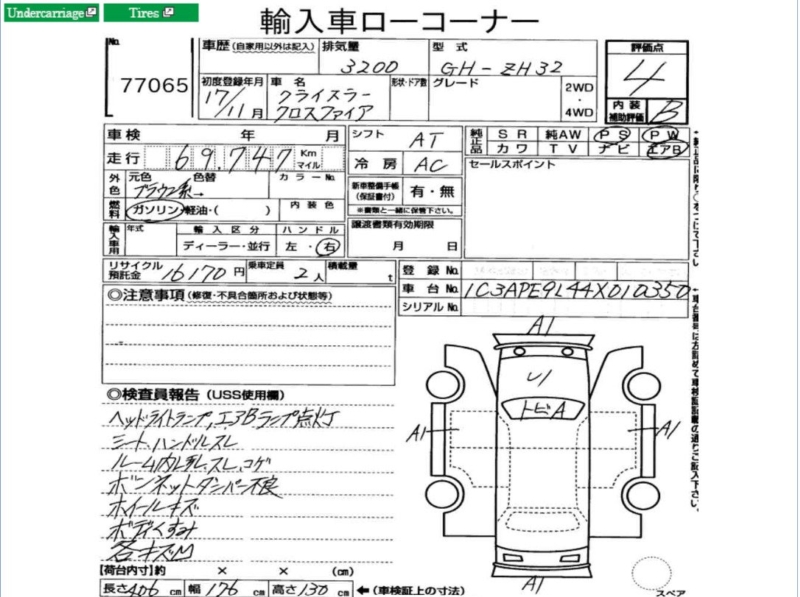 Undercarriage
Tires
輸入車ローコーナー
No.
77065
車歴 (自家用以外は記入)
排気量
3200
型式
GH-ZH32
評価点
4
初度登録年月
17/11月
車名
クライスラー
クロスファイア
形状・ドア数
グレード
2WD
・
4WD
内装
補助評価
B
車検 年 月
シフト
AT
純正品
SR 純AW PS PW
カワ TV ナビ エアB
走行
69,747
Km
マイル
冷房
AC
セールスポイント
外色
元色 色替
ブラウン系→
カラーNo.
新車整備手帳
(保証書付)
有・無
※書類と一緒に保管下さい。
燃料
ガソリン・軽油・( )
内装色
譲渡書類有効期限
月 日
輸入車用
年式
輸入区分
ディーラー・並行
ハンドル
左・右
リサイクル
預託金
16170円
乗車定員
2人
積載量
t
登録No.
車台No.
1C3APE9L44X010350
シリアルNo.
◎注意事項 (修復・不具合箇所および状態等)
◎検査員報告 (USS使用欄)
ヘッドライトランプ,エアBランプ点灯
シート、ハンドルスレ
ルーム内汚、スレ、コゲ
ボンネットダンパー不良
ホイールキズ
ボディくすみ
各キズM
A1
U1
トビA
A1
A1
A1
スペア
【荷台内寸】約 × × (cm)
長さ406cm 幅176cm 高さ130cm ←(車検証上の寸法)